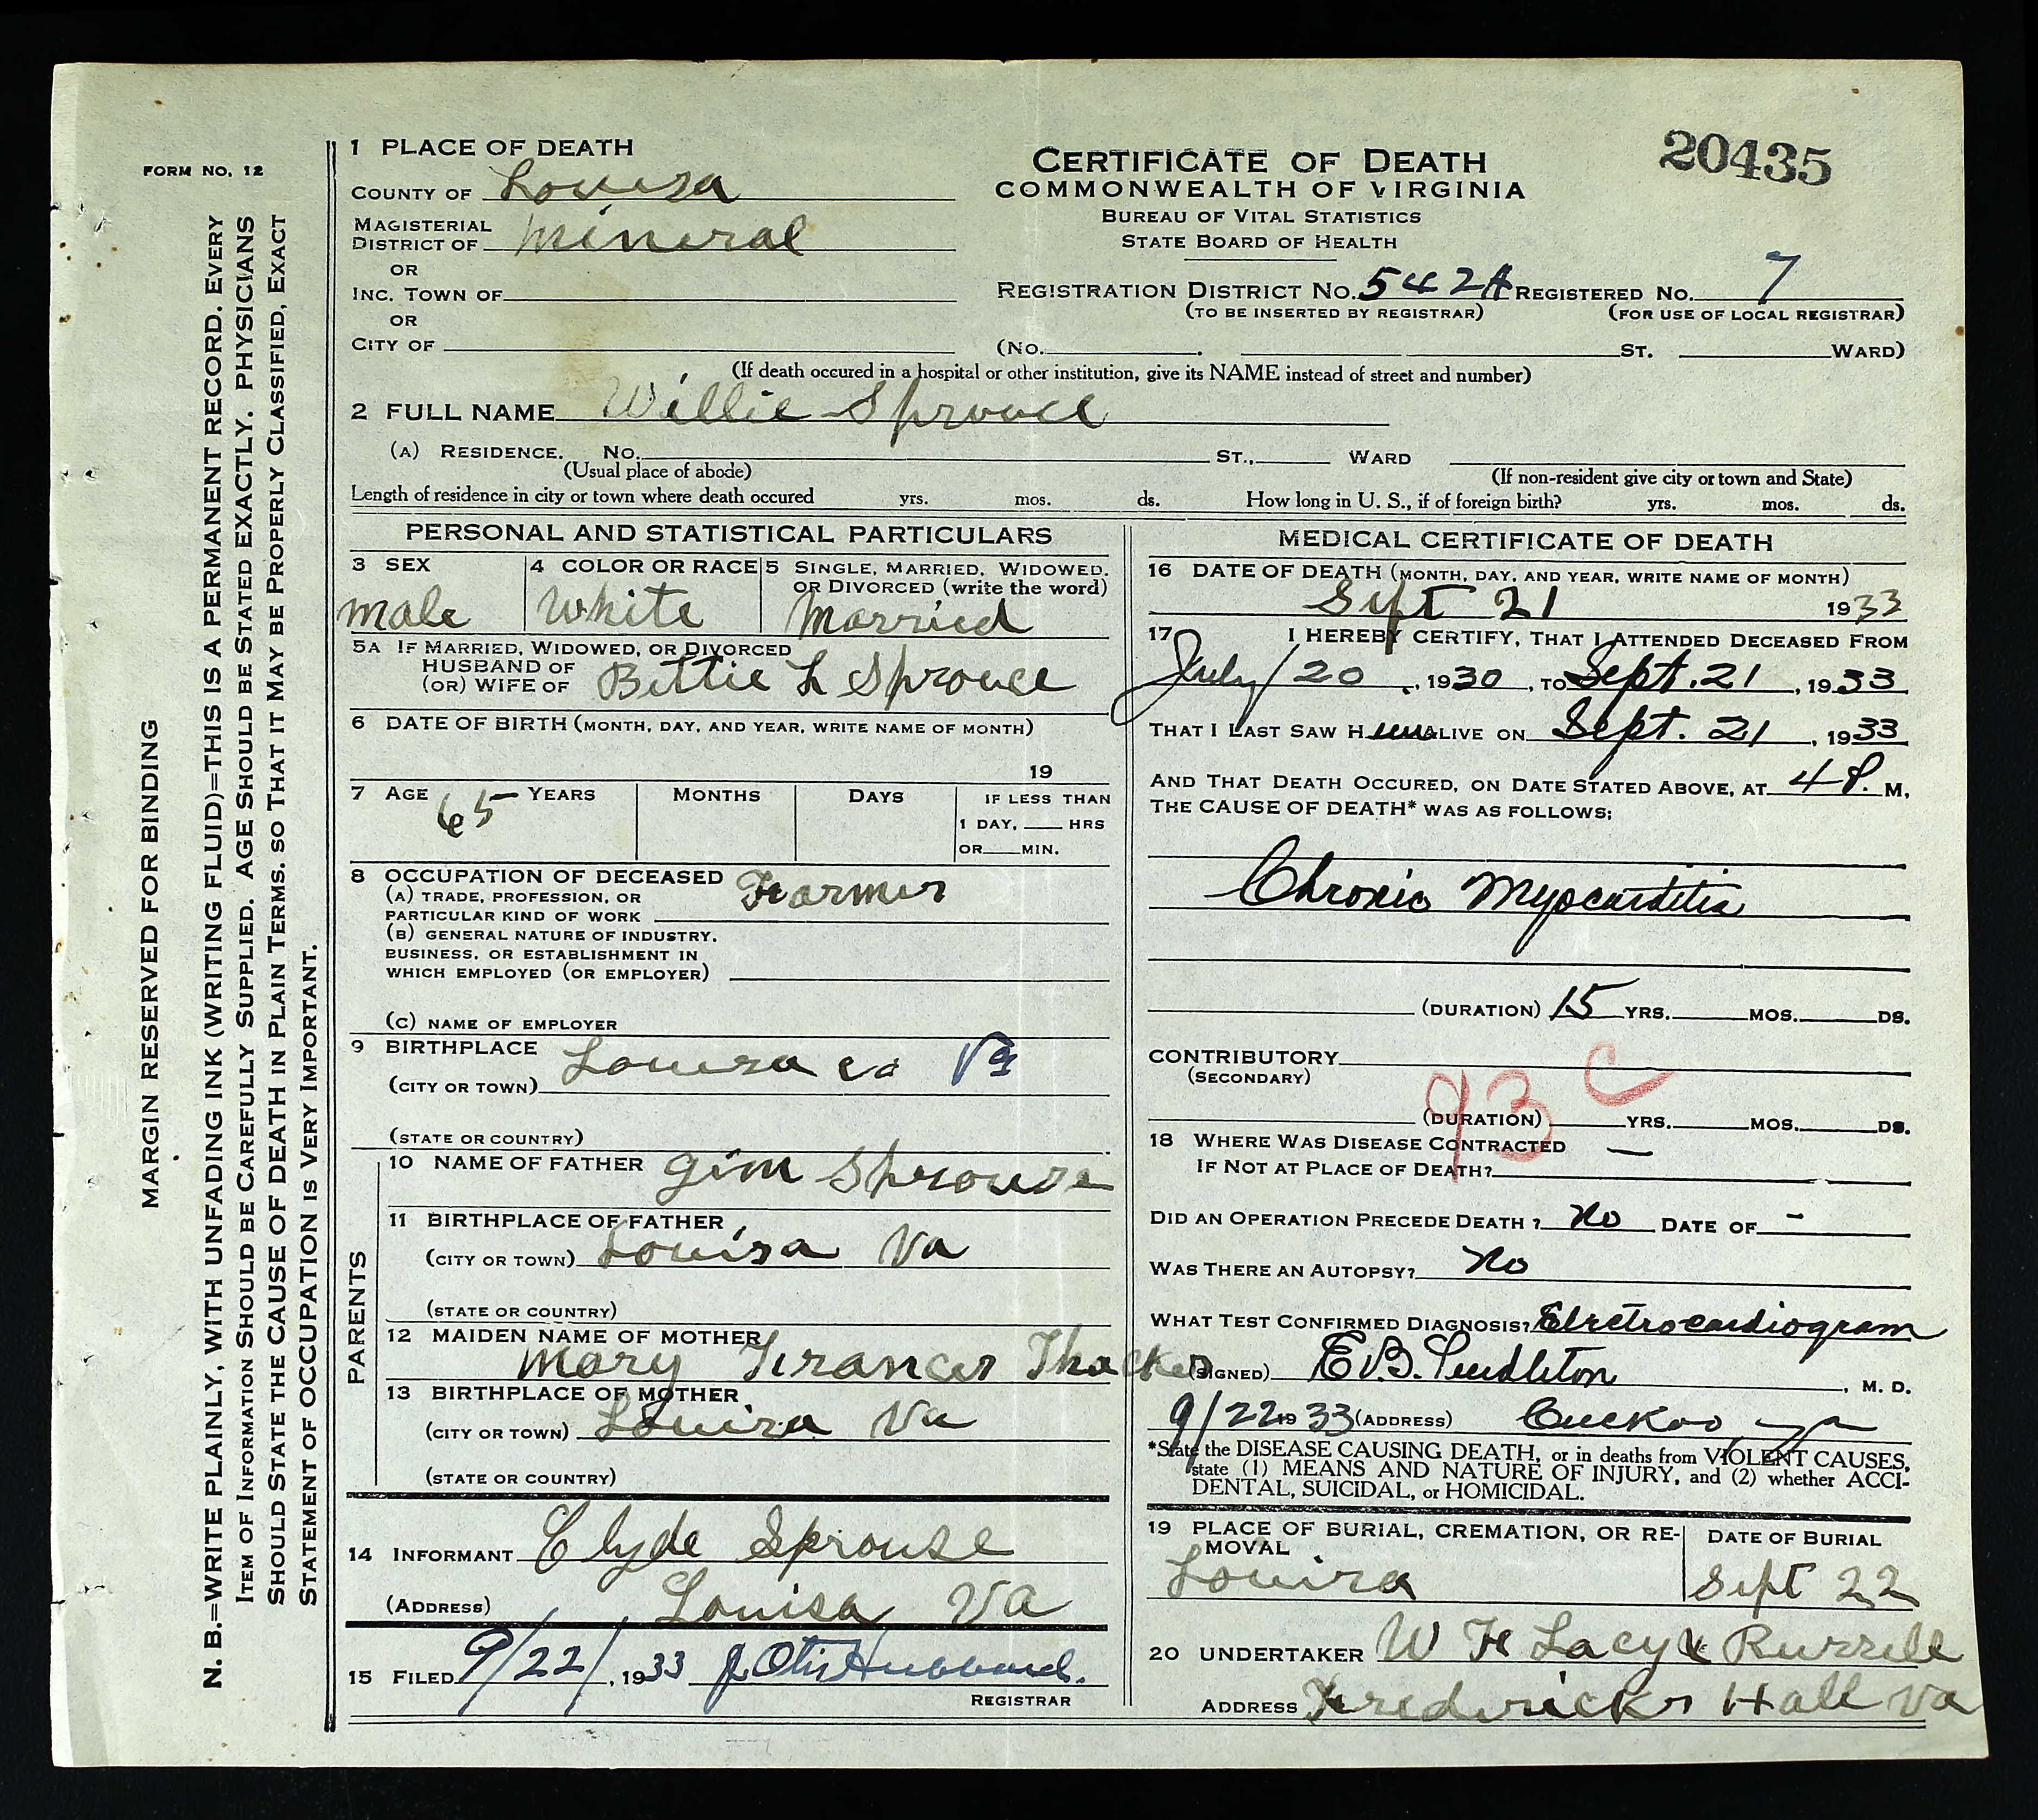 FORM NO. 12
MARGIN RESERVED FOR BINDING
N. B.=WRITE PLAINLY, WITH UNFADING INK (WRITING FLUID)=THIS IS A PERMANENT RECORD. EVERY
ITEM OF INFORMATION SHOULD BE CAREFULLY SUPPLIED. AGE SHOULD BE STATED EXACTLY. PHYSICIANS
SHOULD STATE THE CAUSE OF DEATH IN PLAIN TERMS. SO THAT IT MAY BE PROPERLY CLASSIFIED, EXACT
STATEMENT OF OCCUPATION IS VERY IMPORTANT.
1 PLACE OF DEATH
COUNTY OF Louisa
MAGISTERIAL
DISTRICT OF Mineral
OR
INC. TOWN OF
OR
CITY OF
CERTIFICATE OF DEATH
COMMONWEALTH OF VIRGINIA
BUREAU OF VITAL STATISTICS
STATE BOARD OF HEALTH
20435
REGISTRATION DISTRICT NO. 542A REGISTERED NO. 7
(TO BE INSERTED BY REGISTRAR) (FOR USE OF LOCAL REGISTRAR)
(NO. ST. WARD)
(If death occured in a hospital or other institution, give its NAME instead of street and number)
2 FULL NAME Willie Sprouce
(A) RESIDENCE. NO. ST., WARD
(Usual place of abode) (If non-resident give city or town and State)
Length of residence in city or town where death occured yrs. mos. ds. How long in U. S., if of foreign birth? yrs. mos. ds.
PERSONAL AND STATISTICAL PARTICULARS
3 SEX
male
4 COLOR OR RACE
White
5 SINGLE, MARRIED, WIDOWED,
OR DIVORCED (write the word)
Married
5A IF MARRIED, WIDOWED, OR DIVORCED
HUSBAND OF
(OR) WIFE OF Bettie L Sprouce
6 DATE OF BIRTH (MONTH, DAY, AND YEAR, WRITE NAME OF MONTH)
19
7 AGE 65 YEARS MONTHS DAYS IF LESS THAN
1 DAY, HRS
OR MIN.
8 OCCUPATION OF DECEASED Farmer
(A) TRADE, PROFESSION, OR
PARTICULAR KIND OF WORK
(B) GENERAL NATURE OF INDUSTRY,
BUSINESS, OR ESTABLISHMENT IN
WHICH EMPLOYED (OR EMPLOYER)
(C) NAME OF EMPLOYER
9 BIRTHPLACE Louisa co Va
(CITY OR TOWN)
(STATE OR COUNTRY)
PARENTS
10 NAME OF FATHER Gim Sprouse
11 BIRTHPLACE OF FATHER
(CITY OR TOWN) Louisa Va
(STATE OR COUNTRY)
12 MAIDEN NAME OF MOTHER
Mary Frances Thacker
13 BIRTHPLACE OF MOTHER
(CITY OR TOWN) Louisa Va
(STATE OR COUNTRY)
14 INFORMANT Clyde Sprouse
(ADDRESS) Louisa Va
15 FILED 9/22/, 1933 J Otis Hubbard.
REGISTRAR
MEDICAL CERTIFICATE OF DEATH
16 DATE OF DEATH (MONTH, DAY, AND YEAR, WRITE NAME OF MONTH)
Sept 21 1933
17 I HEREBY CERTIFY, THAT I ATTENDED DECEASED FROM
July 20, 1930, TO Sept. 21, 1933
THAT I LAST SAW H im ALIVE ON Sept. 21, 1933
AND THAT DEATH OCCURED, ON DATE STATED ABOVE, AT 4 P. M,
THE CAUSE OF DEATH* WAS AS FOLLOWS;
Chronic Myocarditis
(DURATION) 15 YRS. MOS. DS.
CONTRIBUTORY
(SECONDARY)
93 C
(DURATION) YRS. MOS. DS.
18 WHERE WAS DISEASE CONTRACTED —
IF NOT AT PLACE OF DEATH?
DID AN OPERATION PRECEDE DEATH? No DATE OF -
WAS THERE AN AUTOPSY? No
WHAT TEST CONFIRMED DIAGNOSIS? Electrocardiogram
(SIGNED) E.B. Pendleton, M. D.
9/22 1933 (ADDRESS) Cuckoo Va
*State the DISEASE CAUSING DEATH, or in deaths from VIOLENT CAUSES,
state (1) MEANS AND NATURE OF INJURY, and (2) whether ACCI-
DENTAL, SUICIDAL, or HOMICIDAL.
19 PLACE OF BURIAL, CREMATION, OR RE-
MOVAL
Louisa
DATE OF BURIAL
Sept 22
20 UNDERTAKER W F Lacy & Burrell
ADDRESS Fredericks Hall Va